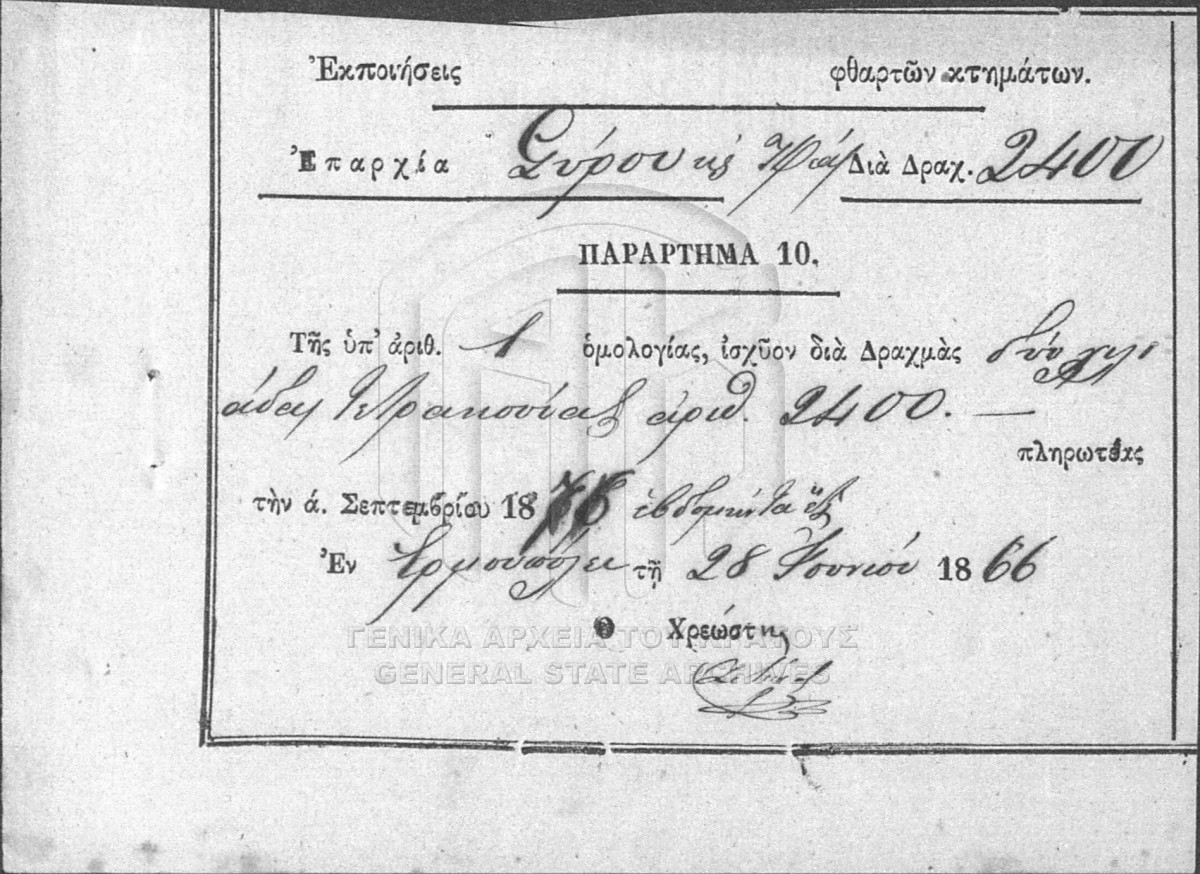 Ἐκποιήσεις φθαρτῶν κτημάτων.
Ἐπαρχία Σύρου Διὰ Δραχ. 2400
ΠΑΡΑΡΤΗΜΑ 10.
Τῆς ὑπ' ἀριθ. 1 ὁμολογίας, ἰσχῦον διὰ Δραχμὰς δύο χιλι
άδας τετρακοσίας ἀριθ. 2400. —
πληρωτέας
τὴν ά. Σεπτεμβρίου 1876 ἑβδομήντα ἕξ
Ἐν Ἑρμουπόλει τῇ 28 Ἰουνίου 1866
Ὁ Χρεώστης
ΓΕΝΙΚΑ ΑΡΧΕΙΑ ΤΟΥ ΚΡΑΤΟΥΣ
GENERAL STATE ARCHIVES